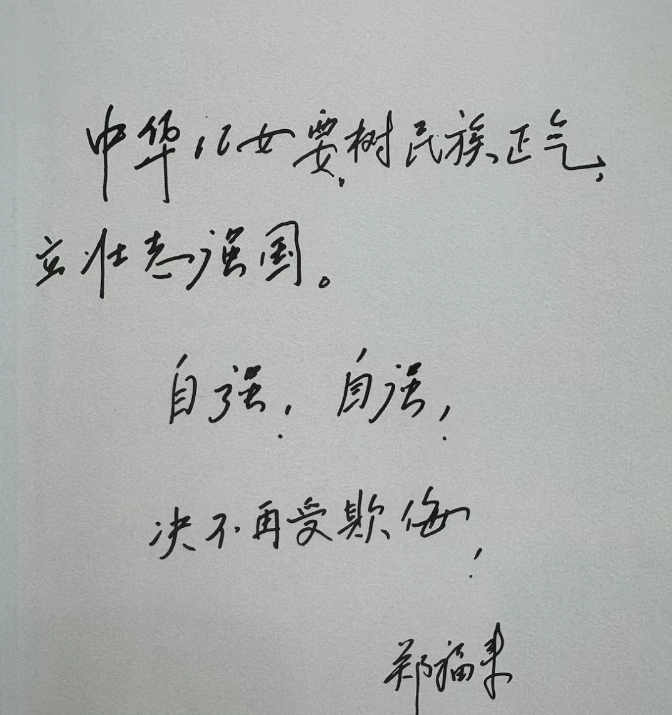 中华儿女要树民族正气,
立壮志强国。
自强,自强,
决不再受欺侮,
郑福来